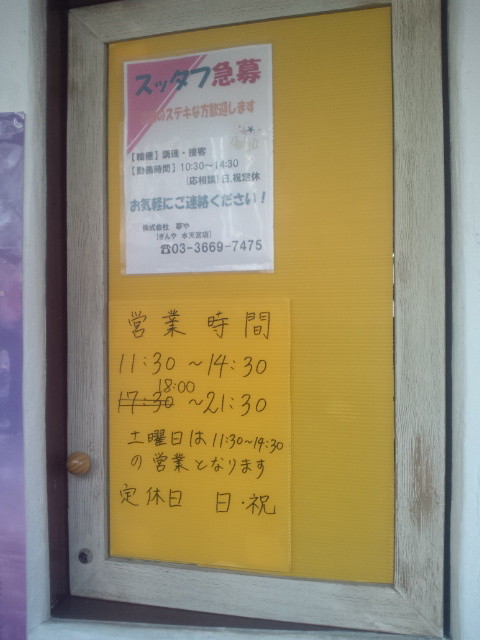 スッタフ急募
のステキな方歓迎します
【職種】調理・接客
【勤務時間】10:30～14:30
(応相談)日,祝定休
お気軽にご連絡ください！
株式会社 夢や
[ぎんや 水天宮店]
☎03-3669-7475
営業時間
11:30 ～14:30
18:00
17:30 ～21:30
土曜日は11:30～14:30
の営業となります
定休日 日・祝